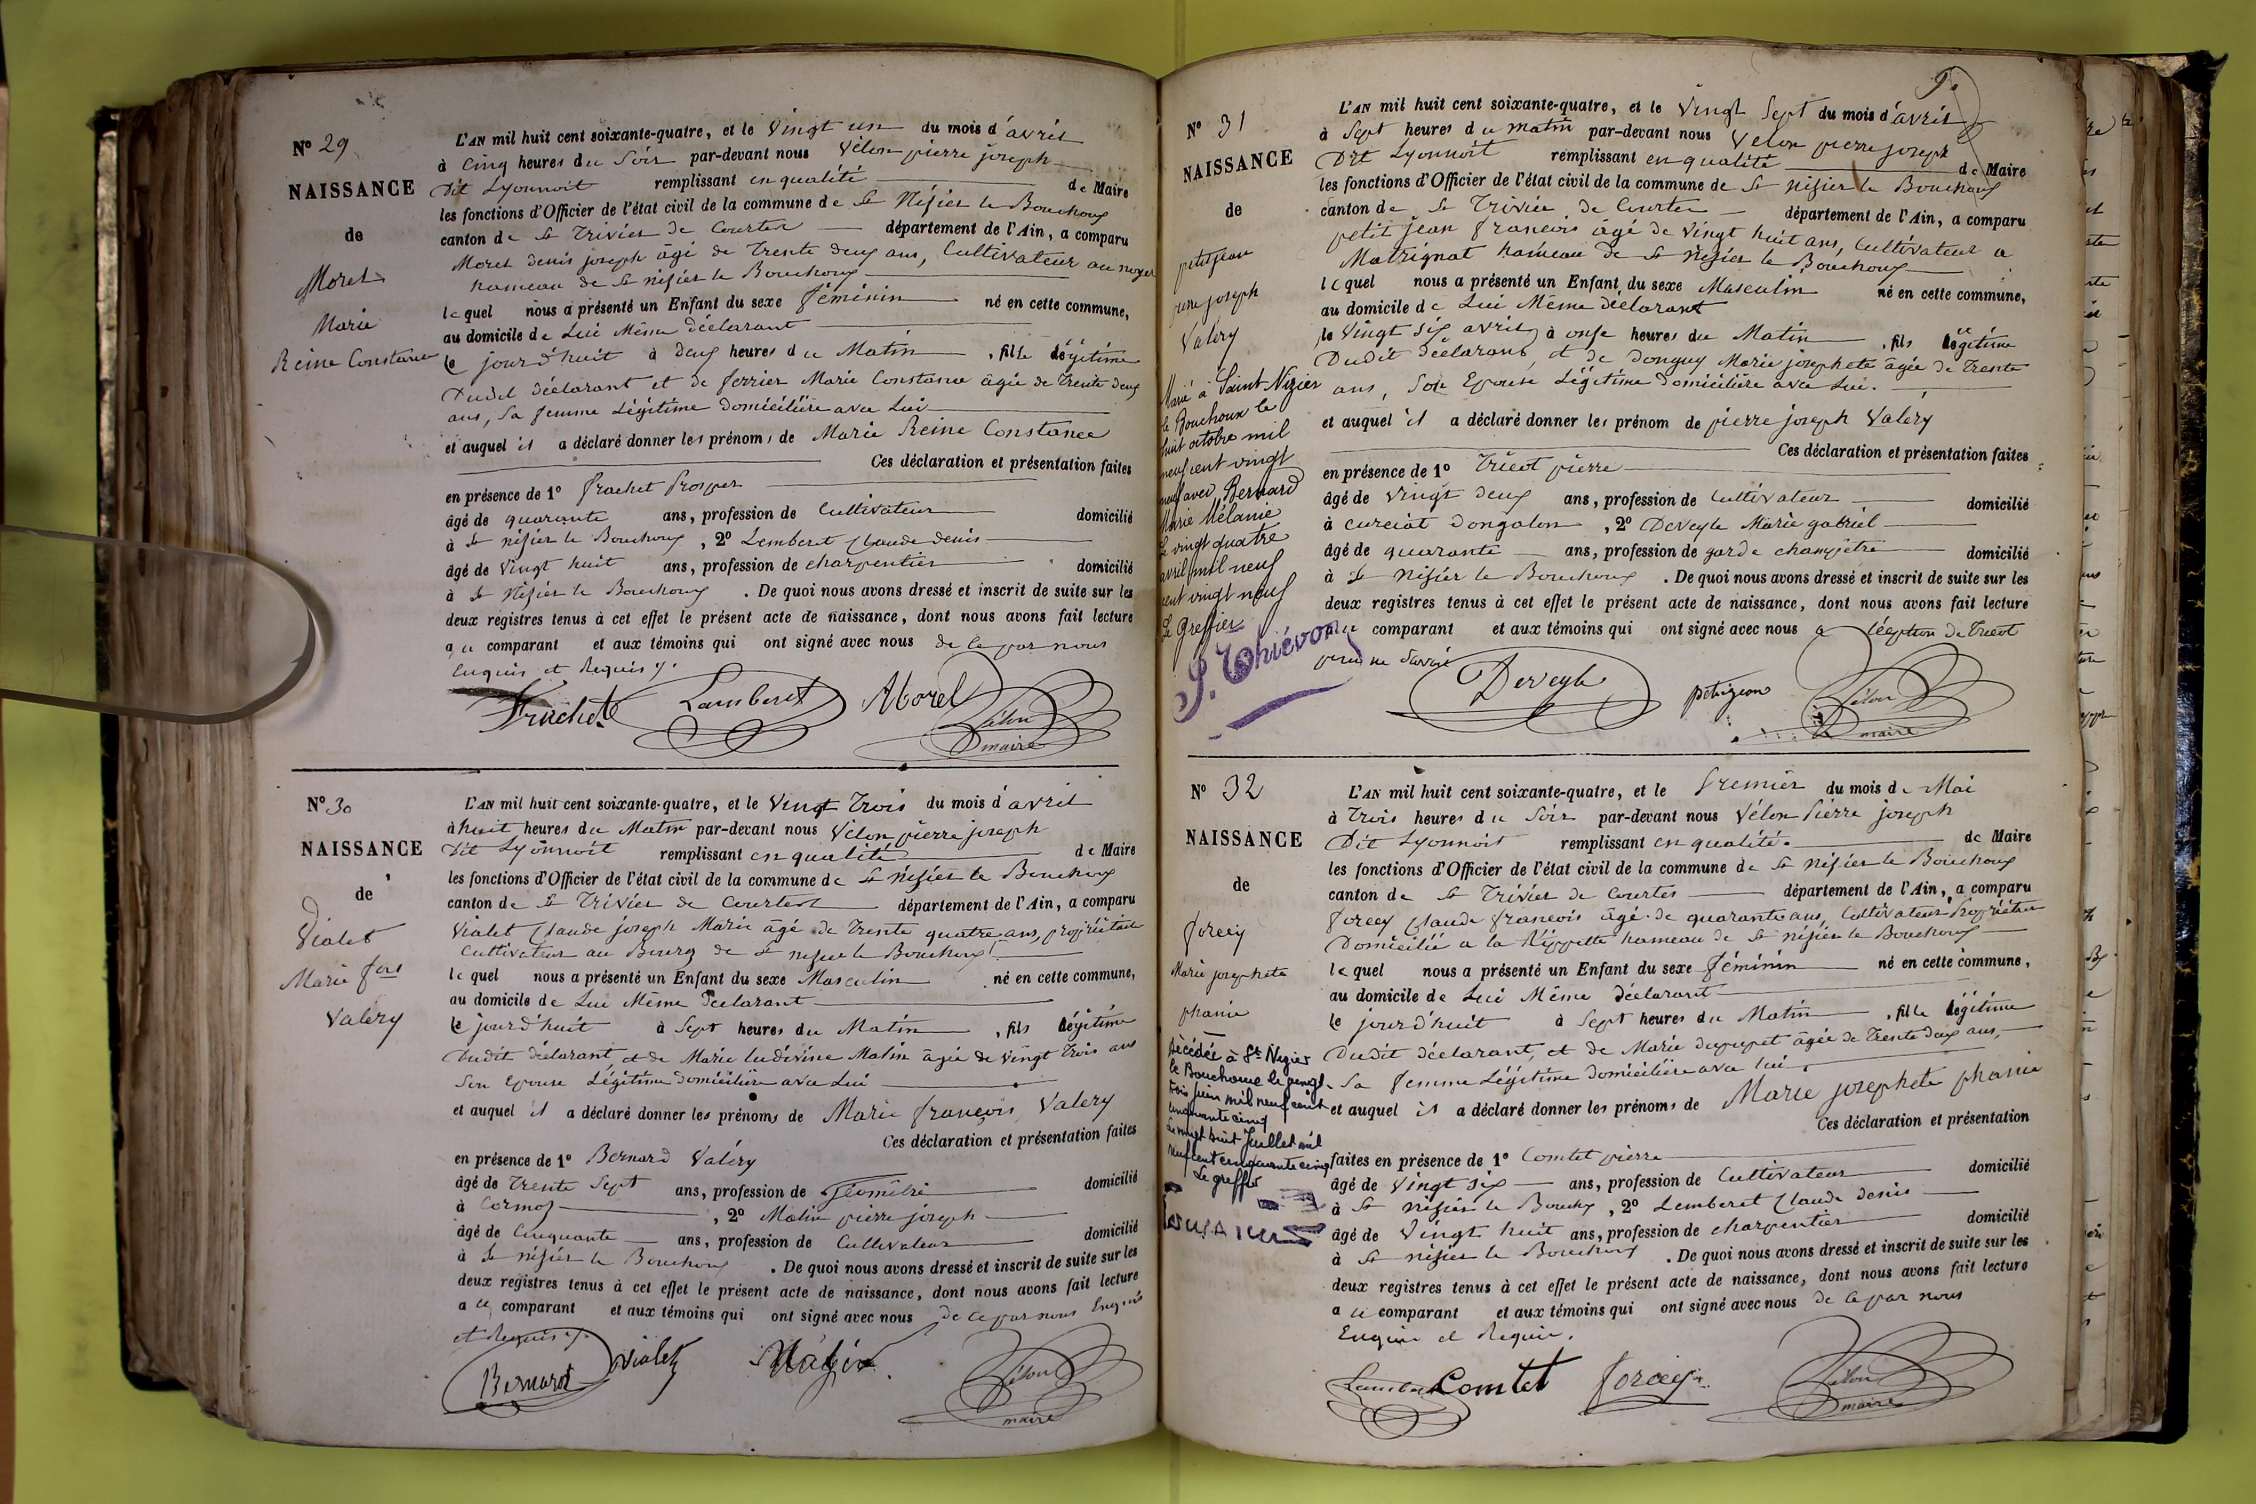 N° 29
NAISSANCE
de
Morel
Marie
Reine Constance
L'AN mil huit cent soixante-quatre, et le Vingt un du mois d'avril
à Cinq heures du Soir par-devant nous Vélon pierre joseph
Dit Lyonnoit remplissant en qualité de Maire
les fonctions d'Officier de l'état civil de la commune de St Nisier le Bouchoux
canton de St Trivier de Courtes département de l'Ain, a comparu
Morel denis joseph âgé de trente deux ans, Cultivateur au noyer
hameau de St nisier le Bouchoux
lequel nous a présenté un Enfant du sexe féminin né en cette commune,
au domicile de Lui Même déclarant
le jourd'huit à Deux heures du Matin, fille légitime
Dudit déclarant et de ferrier Marie Constance âgée de trente deux
ans, Sa femme Légitime domicilière avec Lui
et auquel il a déclaré donner les prénoms de Marie Reine Constance
Ces déclaration et présentation faites
en présence de 1° frachet Prosper
âgé de quarante ans, profession de Cultivateur domicilié
à St nisier le Bouchoux, 2° Lemberet Claude denis
âgé de Vingt huit ans, profession de charpentier domicilié
à St Nisier le Bouchoux. De quoi nous avons dressé et inscrit de suite sur les
deux registres tenus à cet effet le présent acte de naissance, dont nous avons fait lecture
au comparant et aux témoins qui ont signé avec nous de ce par nous
Enquis et Requis
Fruchet Lamberet Morel Vélon
maire
N° 30
NAISSANCE
de
Vialet
Marie fois
Valéry
L'AN mil huit cent soixante-quatre, et le Vingt Trois du mois d'avril
à huit heures du Matin par-devant nous Vélon pierre joseph
Dit Lyonnoit remplissant en qualité de Maire
les fonctions d'Officier de l'état civil de la commune de St nisier le Bouchoux
canton de St Trivier de Courtes département de l'Ain, a comparu
Vialet Claude joseph Marie âgé de Trente quatre ans, propriétaire
Cultivateur au Bourg de St nisier le Bouchoux
lequel nous a présenté un Enfant du sexe Masculin né en cette commune,
au domicile de Lui Même Déclarant
le jourd'huit à Sept heures du Matin, fils légitime
Dudit déclarant, et de Marie ludivine Matin âgée de vingt trois ans
Son Epouse Légitime domicilière avec Lui
et auquel il a déclaré donner les prénoms de Marie françois Valéry
Ces déclaration et présentation faites
en présence de 1° Bernard Valéry
âgé de Trente Sept ans, profession de Géomètre domicilié
à Cormoz, 2° Matin pierre joseph
âgé de Cinquante ans, profession de Cultivateur domicilié
à St nisier le Bouchoux. De quoi nous avons dressé et inscrit de suite sur les
deux registres tenus à cet effet le présent acte de naissance, dont nous avons fait lecture
au comparant et aux témoins qui ont signé avec nous de ce par nous Enquis
et Requis
Bernard Vialet Vélon
maire
9.
N° 31
NAISSANCE
de
petitjean
pierre joseph
Valéry
Marié à Saint Nizier
le Bouchoux le
huit octobre mil
neuf cent vingt
neuf avec Bernard
Marie Mélanie
Le vingt quatre
avril mil neuf
cent vingt neuf
Le Greffier
J. Thiévon
L'AN mil huit cent soixante-quatre, et le Vingt Sept du mois d'avril
à Sept heures du matin par-devant nous Vélon pierre joseph
Dit Lyonnoit remplissant en qualité de Maire
les fonctions d'Officier de l'état civil de la commune de St nisier le Bouchoux
canton de St Trivier de Courtes département de l'Ain, a comparu
petit jean francois âgé de Vingt huit ans, Cultivateur a
Matrignat hameau de St nisier le Bouchoux
lequel nous a présenté un Enfant du sexe Masculin né en cette commune,
au domicile de Lui Même déclarant
le Vingt six avril, à onse heures du Matin, fils légitime
Dudit déclarant, et de donguy Marie josephete âgée de trente
ans, Son Epouse Légitime domicilière avec Lui.
et auquel il a déclaré donner les prénom de pierre joseph Valéry
Ces déclaration et présentation faites
en présence de 1° Tricot pierre
âgé de vingt deux ans, profession de Cultivateur domicilié
à curciat dongalon, 2° Deveyle Marie gabriel
âgé de quarante ans, profession de garde champêtre domicilié
à St nisier le Bouchoux. De quoi nous avons dressé et inscrit de suite sur les
deux registres tenus à cet effet le présent acte de naissance, dont nous avons fait lecture
au comparant et aux témoins qui ont signé avec nous a l'éxeption de Tricot
pour ne Savoir
Deveyle petitjean Vélon
maire
N° 32
NAISSANCE
de
forey
Marie josephete
phanie
Décédée à St Nizier
le Bouchoux le vingt-
trois juin mil neuf cent
cinquante cinq
Le vingt huit Juillet mil
neuf cent cinquante cinq
Le greffier
L'AN mil huit cent soixante-quatre, et le Premier du mois de Mai
à Trois heures du Soir par-devant nous Vélon Pierre joseph
Dit Lyonnoit remplissant en qualité de Maire
les fonctions d'Officier de l'état civil de la commune de St nisier le Bouchoux
canton de St Trivier de Courtes département de l'Ain, a comparu
forey Claude francois âgé de quarante ans, Cultivateur Propriétaire
Domicilié a la Rippette hameau de St nisier le Bouchoux
lequel nous a présenté un Enfant du sexe féminin né en cette commune,
au domicile de Lui Même déclarant
le jourd'huit à Sept heures du Matin, fille légitime
Dudit déclarant, et de Marie dupupet âgée de Trente deux ans,
Sa femme Légitime domicilière avec lui.
et auquel il a déclaré donner les prénoms de Marie josephete phanie
Ces déclaration et présentation
faites en présence de 1° Comtet pierre
âgé de Vingt six ans, profession de Cultivateur domicilié
à St nisier le Bouchoux, 2° Lemberet Claude denis
âgé de Vingt huit ans, profession de charpentier domicilié
à St nisier le Bouchoux. De quoi nous avons dressé et inscrit de suite sur les
deux registres tenus à cet effet le présent acte de naissance, dont nous avons fait lecture
au comparant et aux témoins qui ont signé avec nous de ce par nous
Enquis et Requis.
Lamberet Comtet forey Vélon
maire